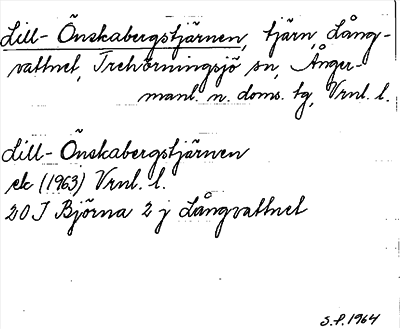 Lill-Önskabergstjärnen, tjärn, Lång-
vattnet, Trehörningsjö sn, Ånger-
manl. n. doms. tg, Vrnl. l.
Lill-Önskabergstjärnen
ek (1963) Vrnl. l.
20 I Björna 2 j Långvattnet
S.P. 1964